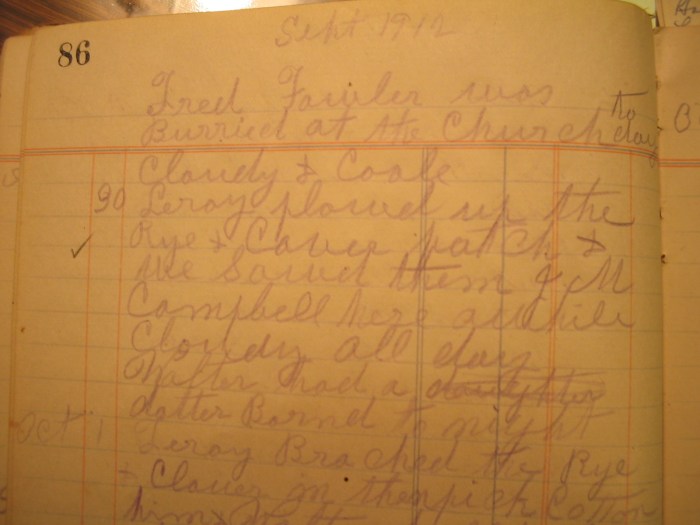 86
Sept 1912
Fred Fowler was
Burried at the Church to day
Cloudy & Coole
30 Leroy plowed up the
Rye & Clover patch &
We Sowed them J M
Campbell here awhile
Cloudy all day
Walter had a daughter
dotter Bornd to night
Oct 1 Leroy Broched the Rye
& Clover in then pick Cotton